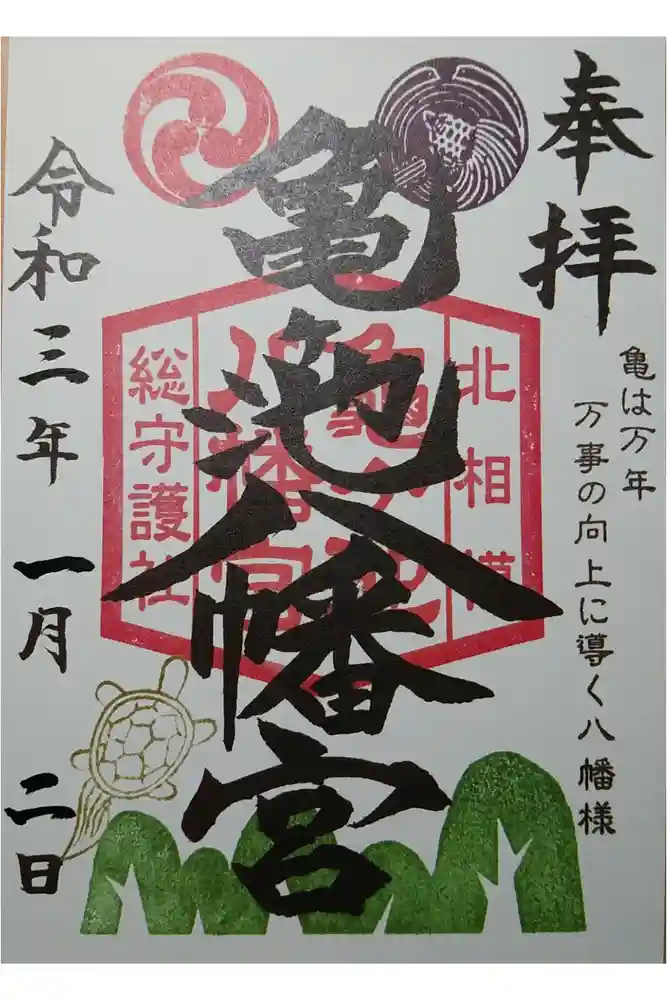 奉拝
亀は万年
万事の向上に導く八幡様
亀池八幡宮
北相模
亀ヶ池
八幡宮
総守護社
令和三年一月二日